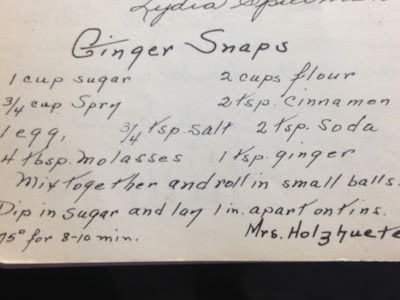 Lydia
Ginger Snaps
1 cup sugar 2 cups flour
3/4 cup Spry 2 tsp. Cinnamon
1 egg, 3/4 tsp. salt 2 tsp. Soda
4 tbsp. molasses 1 tsp. ginger
Mix together and roll in small balls.
Dip in sugar and lay 1 in. apart on tins.
75° for 8-10 min. Mrs. Holzhuete